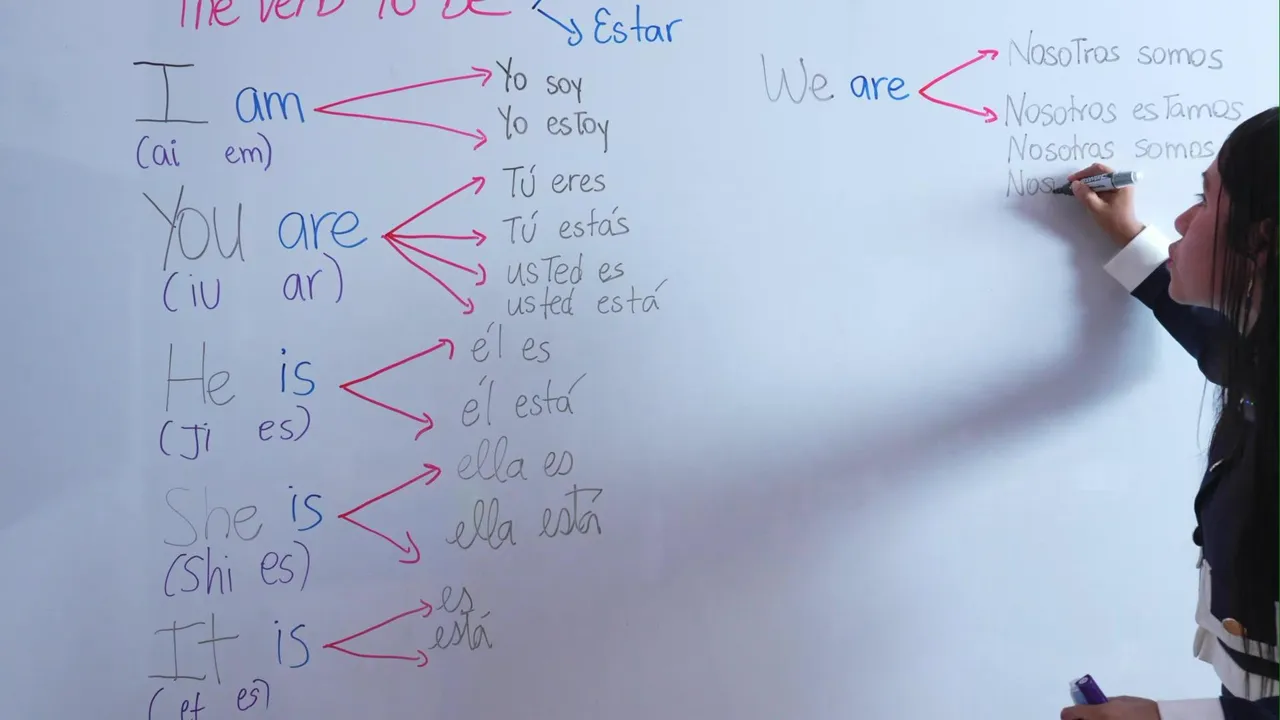 The verb To Be
Estar
I am
(ai em)
Yo soy
Yo estoy
You are
(iu ar)
Tú eres
Tú estás
usted es
usted está
He is
(Ji es)
él es
él está
She is
(Shi es)
ella es
ella está
It is
(et es)
es
está
We are
Nosotros somos
Nosotros estamos
Nosotras somos
Nos